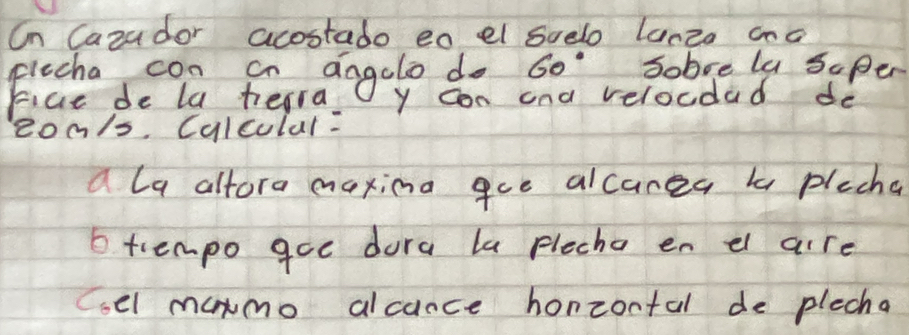 Un Cazador acostado en el suelo lanza una
flecha con un ángulo de 60° sobre la super
ficie de la tierra y con una velocidad de
20m/s. Calcular:
a La altura maxima que alcanza la flecha
b tiempo que dura la flecha en el aire
C. el maximo alcance horizontal de flecha